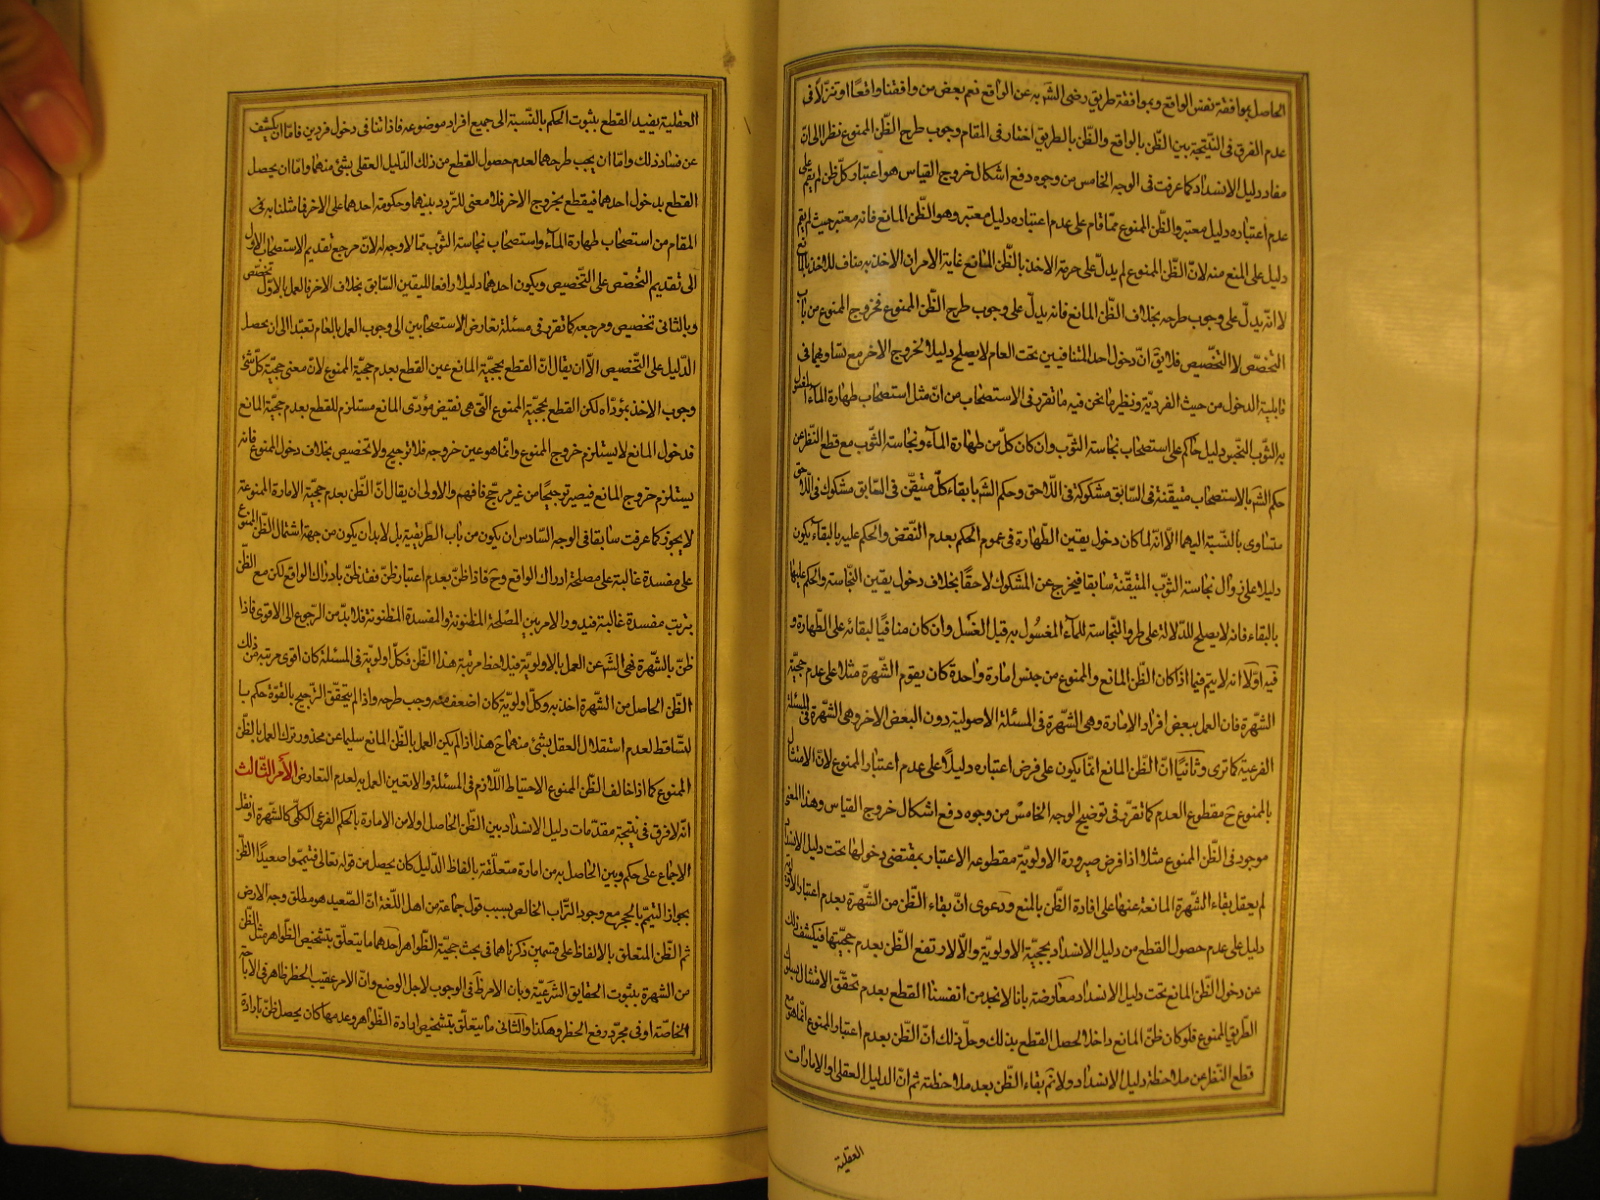 الحاصل بموافقة نفس الواقع وبموافقة طريق رضى الشه به عن الواقع نعم بعض من وافقنا واقعًا او تنزّلاً فى
عدم الفرق فى النّتيجة بين الظّن بالواقع والظّن بالطريق اختار فى المقام وجوب طرح الظّن الممنوع نظرا الى انّ
مفاد دليل الانسداد كما عرفت فى الوجه الخامس من وجوه دفع اشكال خروج القياس هو اعتبار كلّ ظن لم يقم على
عدم اعتباره دليل معتبر والظّن الممنوع ممّا قام على عدم اعتباره دليل معتبر وهو الظّن المانع فانه معتبر حيث لم يقم
دليل على المنع منه لانّ الظّن الممنوع لم يدلّ على حرمة الاخذ بالظّن المانع غاية الامر ان الاخذ به مناف للاخذ بالمانع
لا انّه يدلّ على وجوب طرحه بخلاف الظّن المانع فانه يدلّ على وجوب طرح الظّن الممنوع فخروج الممنوع من باب
التخصّص لا التّخصيص فلا يقّ انّ دخول احد المتنافيين تحت العام لا يصلح دليلا لخروج الاخر مع تساويهما فى
قابلية الدخول من حيث الفردية ونظير ما نحن فيه ما تقرر فى الاستصحاب من انّ مثل استصحاب طهارة الماء المغسول
به الثّوب النّجس دليل حاكم على استصحاب نجاسة الثّوب وان كان كلّ من طهارة الماء ونجاسة الثّوب مع قطع النّظر عن
حكم الشه بالاستصحاب متيقّنة فى السّابق مشكوكة فى اللّاحق وحكم الشه بابقاء كلّ متيقّن فى السّابق مشكوك فى اللّاحق
متساوى بالنّسبة اليهما الّا انّه لما كان دخول يقين الطّهارة فى عموم الحكم بعدم النّقض والحكم عليه بالبقاء يكون
دليلا على زوال نجاسة الثّوب المتيقّنة سابقا فيخرج عن المشكوك لاحقًا بخلاف دخول يقين النّجاسة والحكم عليها
بالبقاء فانه لا يصلح للدّلالة على طرو النّجاسة للماء المغسول به قبل الغسل وان كان منافيًا لبقائه على الطّهارة و
فيه اوّلا انه لا يتم فيما اذا كان الظّن المانع والممنوع من جنس امارة واحدة كان يقوم الشّهرة مثلا على عدم حجيّة
الشّهرة فان العمل ببعض افراد الامارة وهى الشّهرة فى المسئلة الاصولية دون البعض الاخر وهى الشّهرة فى المسئلة
الفرعيّة كما ترى وثانيًا انّ الظّن المانع انّما يكون على فرض اعتباره دليلاً على عدم اعتبار الممنوع لانّ الامتثال
بالممنوع ح مقطوع العدم كما تقرّر فى توضيح الوجه الخامس من وجوه دفع اشكال خروج القياس وهذا المعنى
موجود فى الظّن الممنوع مثلا اذا فرض صيرورة الاولويّة مقطوعه الاعتبار بمقتضى دخولها تحت دليل الانسداد
لم يعقل بقاء الشّهرة المانعة عنها على افادة الظّن بالمنع ودعوى انّ بقاء الظّن من الشّهرة بعدم اعتبار الاولوية
دليل على عدم حصول القطع من دليل الانسداد بحجيّة الاولويّة والّا لارتفع الظّن بعدم حجيّتها فيكشف ذلك
عن دخول الظّن المانع تحت دليل الانسداد معارضة بانا لا نجد من انفسنا القطع بعدم تحقّق الامتثال بسلوك
الطّريق الممنوع فلو كان ظنّ المانع داخلا لحصل القطع بذلك وحلّ ذلك انّ الظّن بعدم اعتبار الممنوع انّما هو مع
قطع النّظر عن ملاحظة دليل الانسداد ولا نم بقاء الظّن بعد ملاحظته ثم انّ الدليل العقلى او الامارات
العقلية
العقلية يفيد القطع بثبوت الحكم بالنّسبة الى جميع افراد موضوعه فاذا تنافى دخول فردين فامّا ان يكشف
عن فساد ذلك وامّا ان يجب طرحهما لعدم حصول القطع من ذلك الدّليل العقلى بشئ منهما وامّا ان يحصل
القطع بدخول احدهما فيقطع بخروج الاخر فلا معنى للتردد بينهما وحكومة احدهما على الاخر فما مثلنا به فى
المقام من استصحاب طهارة الماء واستصحاب نجاسة الثّوب ممّا لا وجه له لانّ مرجع تقديم الاستصحاب الاول
الى تقديم التّخصّص على التّخصيص ويكون احدهما دليلا رافعا لليقين السّابق بخلاف الاخر فالعمل بالاوّل تخصّص
وبالثانى تخصيص ومرجعه كما تقرر فى مسئلة تعارض الاستصحابين الى وجوب العمل بالعام تعبّدا الى ان يحصل
الدّليل على التّخصيص الّا ان يقال انّ القطع بحجيّة المانع عين القطع بعدم حجيّة الممنوع لانّ معنى حجيّة كلّ شئ
وجوب الاخذ بمؤدّاه لكن القطع بحجيّة الممنوع الّتى هى نقيض مؤدّى المانع مستلزم للقطع بعدم حجيّة المانع
فدخول المانع لا يستلزم خروج الممنوع وانّما هو عين خروجه فلا ترجيح ولا تخصيص بخلاف دخول الممنوع فانه
يستلزم خروج المانع فيصير ترجيحًا من غير مرجّح فافهم والاولى ان يقال انّ الظّن بعدم حجيّة الامارة الممنوعة
لا يجوز كما عرفت سابقا فى الوجه السّادس ان يكون من باب الطّريقية بل لا بد ان يكون من جهة اشتمال الظّن الممنوع
على مفسدة غالبة على مصلحة ادراك الواقع وح فاذا ظنّ بعدم اعتبار ظنّ فقد ظنّ بادراك الواقع لكن مع الظّن
بترتب مفسدة غالبة فيدور الامر بين المصلحة المظنونة والمفسدة المظنونة فلا بدّ من الرّجوع الى الاقوى فاذا
ظنّ بالشّهرة نهى الشه عن العمل بالاولويّة فيلاحظ مرتبة هذا الظّن فكلّ اولويّة فى المسئلة كان اقوى مرتبة من ذلك
الظّن الحاصل من الشّهرة اخذ به وكلّ اولويّة كان اضعف منه وجب طرحه واذا لم يتحقّق التّرجيح بالقوّة حكم با
لتّساقط لعدم استقلال العقل بشئ منهما ح هذا اذا لم يكن العمل بالظّن المانع سليما عن محذور ترك العمل بالظّن
الممنوع كما اذا خالف الظّن الممنوع الاحتياط اللّازم فى المسئلة والا تعين العمل به لعدم التعارض الأمر الثّالث
انّه لا فرق فى نتيجة مقدّمات دليل الانسداد بين الظّن الحاصل اولا من الامارة بالحكم الفرعى الكلّى كالشّهرة او نقل
الاجماع على حكم وبين الحاصل به من امارة متعلّقة بالفاظ الدّليل كان يحصل من قوله تعالى فتيمّموا صعيدًا الظّن
بجواز التيمّم بالحجر مع وجود التّراب الخالص بسبب قول جماعة من اهل اللّغة انّ الصّعيد هو مطلق وجه الارض
ثم الظّن المتعلق بالالفاظ على قسمين ذكرناهما فى بحث حجيّة الظّواهر احدهما ما يتعلّق بتشخيص الظّواهر مثل الظّن
من الشهرة بثبوت الحقايق الشّرعيّة وبان الامر ظّ فى الوجوب لاجل الوضع وانّ الامر عقيب الحظر ظاهر فى الاباحة
الخاصّة او فى مجرّد رفع الحظر وهكذا والثّانى ما يتعلّق بتشخيص ارادة الظّواهر وعدمها كان يحصل ظنّ بارادة